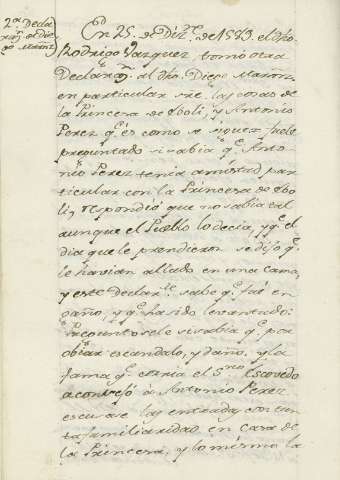 2.ª Decla
raz.n de Die
go Martz
En 25. de Diz.e de 1589. el dho
Rodrigo Vazquez, tomo otra
Declaraz.n al dho. Diego Martinz
en particular sre. las cosas de
la Princesa de Eboli, y Antonio
Perez q.e es como se sigue: fuele
preguntado si sabia q.e Anto-
nio Perez tenia amistad par-
ticular con la Princesa de Ebo-
li, respondió que no sabia tal
aunque el Pueblo lo decia, y q.e el
dia que le prendieron se dijo q.e
le havian allado en una cama,
y este Declar.te sabe q.e fué en-
gaño, y q.e ha sido levantado:
Preguntosele si sabia q.e por
obiar escandalo, y daño, y la
fama q.e corria el S.no Escovedo
aconsejó á Antonio Perez
escusase las entradas con tan-
ta familiaridad en casa de
la Princesa, y lo mismo la